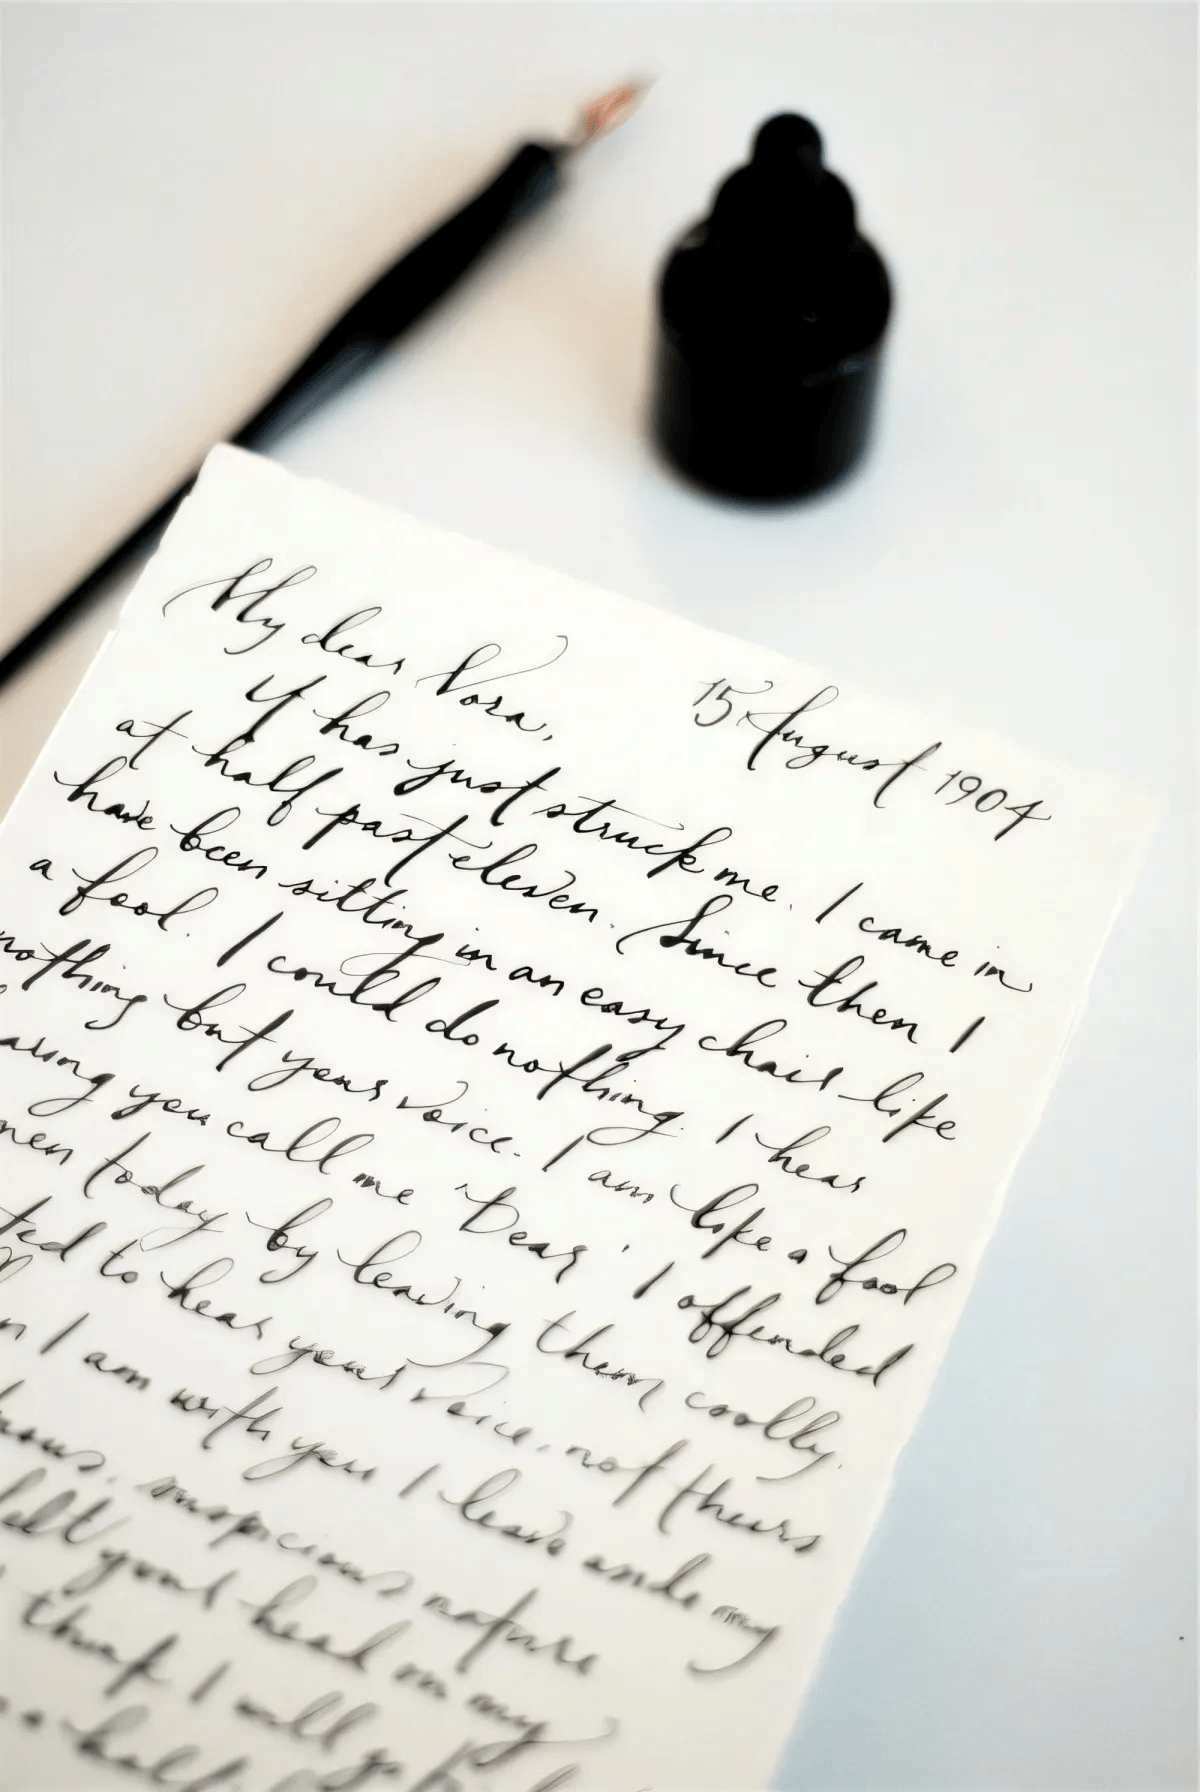 My dear Nora,
15 August 1904
It has just struck me. I came in
at half past eleven. Since then I
have been sitting in an easy chair like
a fool. I could do nothing. I hear
nothing but your voice. I am like a fool
aring you call me 'Dear'. I offended
men today by leaving them coolly.
ted to hear your voice, not theirs
n I am with you I leave aside my
uous, suspicious nature
felt your head on my
think I will go
a half